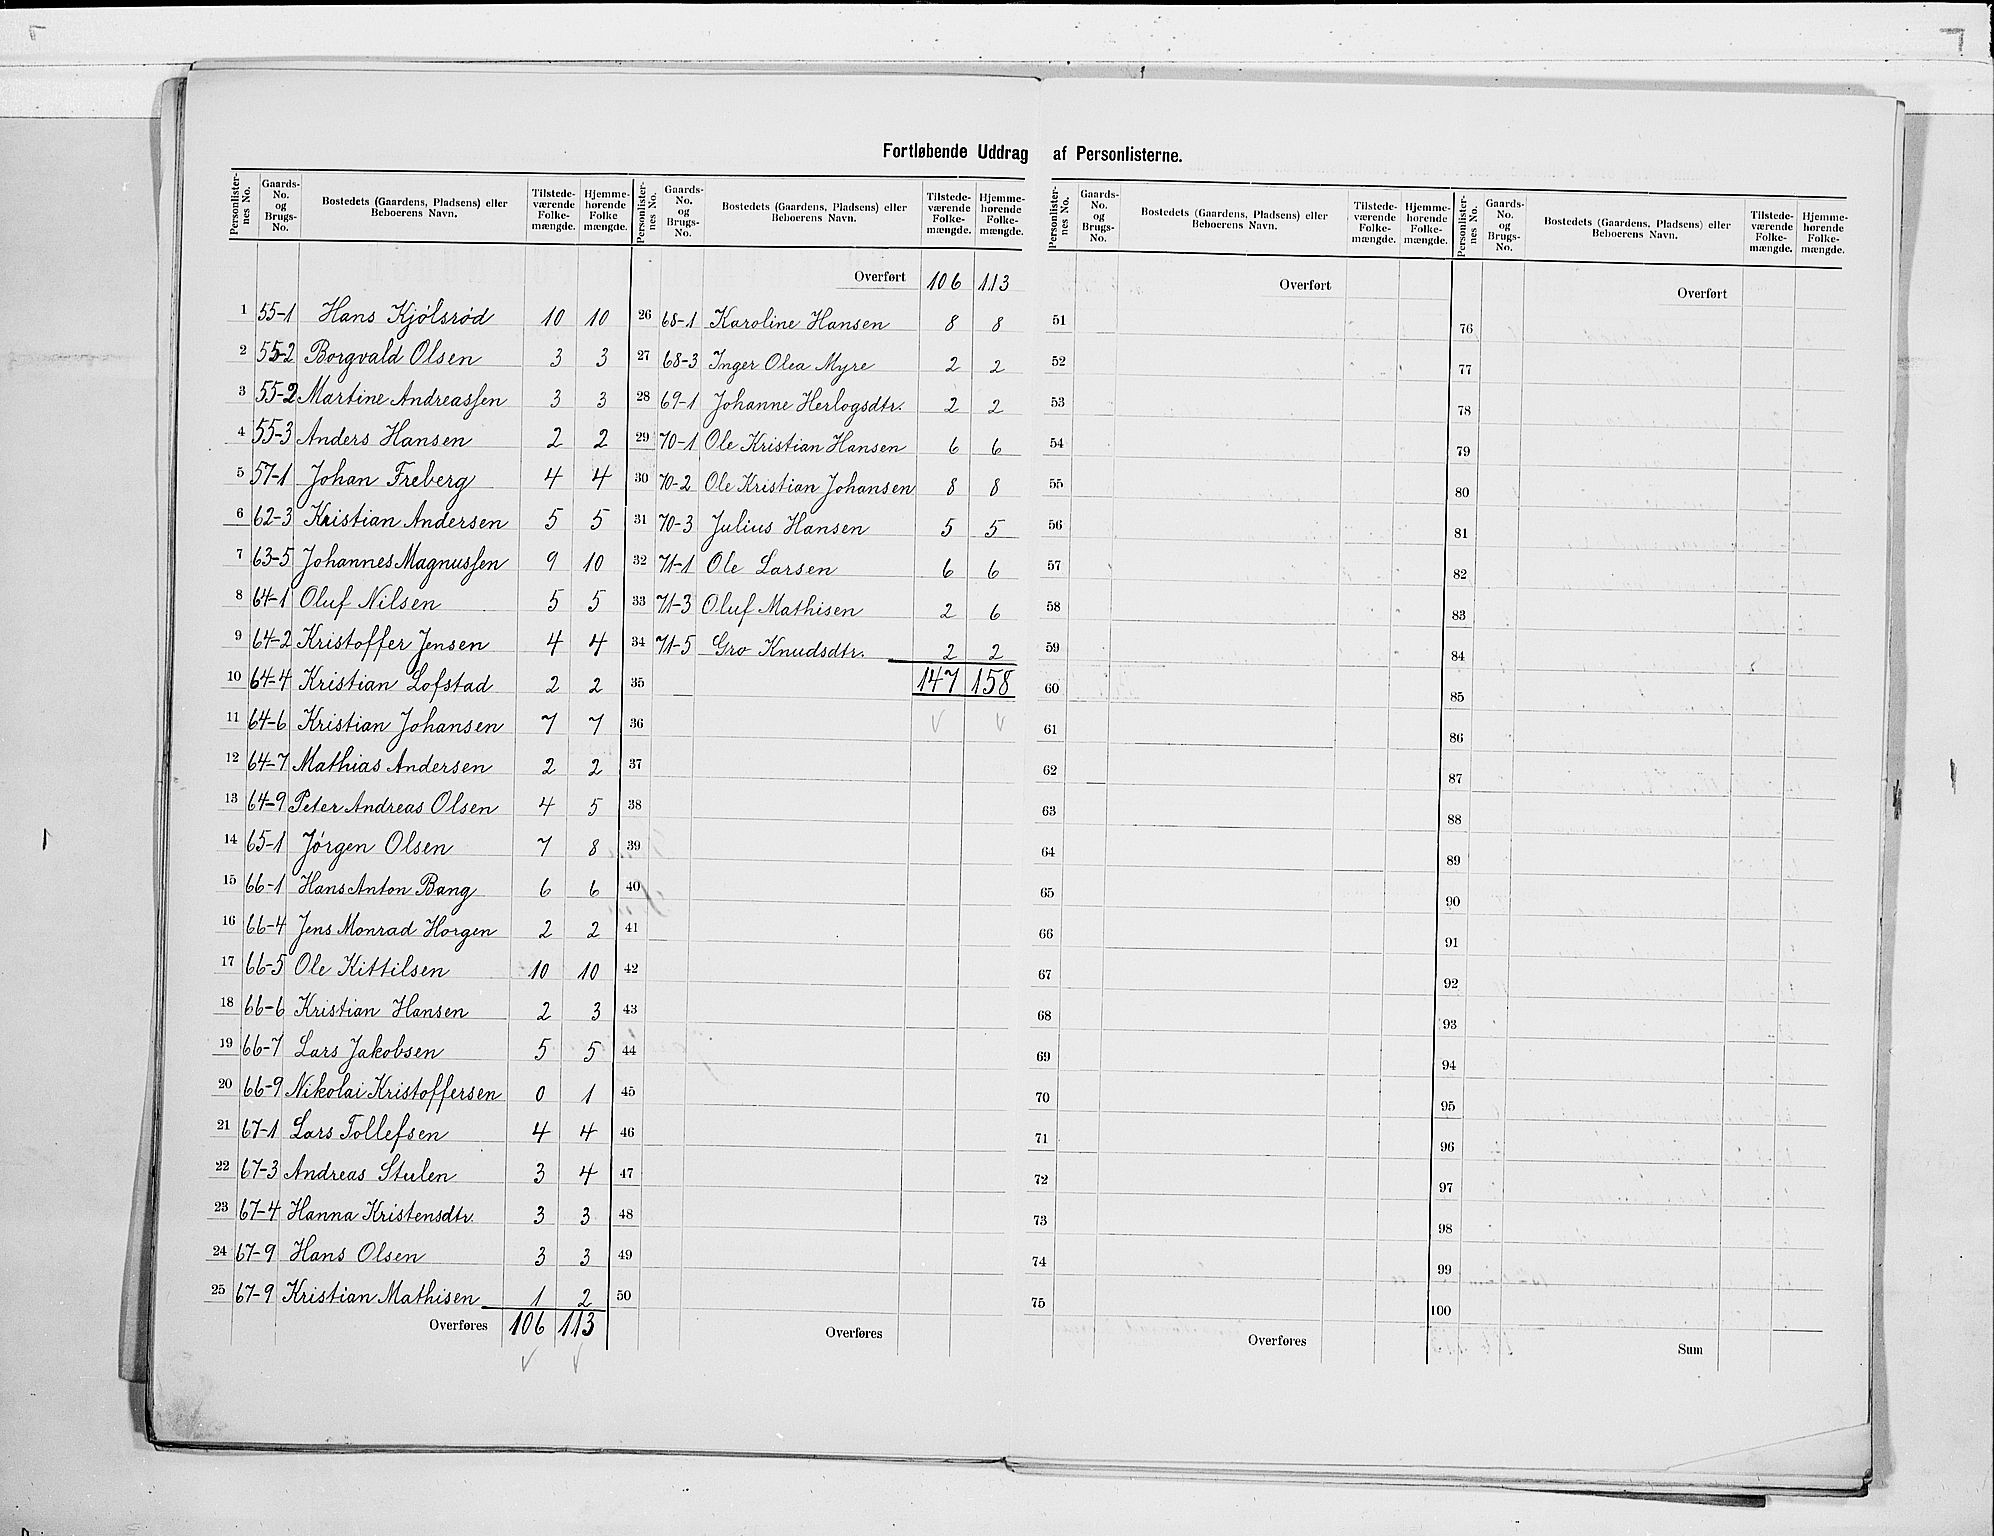 Fortløbende Uddrag af Personlisterne.
Personlisternes No. Gaards-No. og Brugs-No. Bostedets (Gaardens, Pladsens) eller Beboerens Navn. Tilstedeværende Folkemængde. Hjemmehørende Folkemængde.
1 55-1 Hans Kjølsrød 10 10
2 55-2 Borgvald Olsen 3 3
3 55-2 Martine Andreassen 3 3
4 55-3 Anders Hansen 2 2
5 57-1 Johan Freberg 4 4
6 62-3 Kristian Andersen 5 5
7 63-5 Johannes Magnussen 9 10
8 64-1 Oluf Nilsen 5 5
9 64-2 Kristoffer Jensen 4 4
10 64-4 Kristian Lofstad 2 2
11 64-6 Kristian Johansen 7 7
12 64-7 Mathias Andersen 2 2
13 64-9 Peter Andreas Olsen 4 5
14 65-1 Jørgen Olsen 7 8
15 66-1 Hans Anton Bang 6 6
16 66-4 Jens Monrad Horgen 2 2
17 66-5 Ole Kittilsen 10 10
18 66-6 Kristian Hansen 2 3
19 66-7 Lars Jakobsen 5 5
20 66-9 Nikolai Kristoffersen 0 1
21 67-1 Lars Tollefsen 4 4
22 67-3 Andreas Stulen 3 4
23 67-4 Hanna Kristensdtr. 3 3
24 67-9 Hans Olsen 3 3
25 67-9 Kristian Mathisen 1 2
Overføres 106 113
Personlisternes No. Gaards-No. og Brugs-No. Bostedets (Gaardens, Pladsens) eller Beboerens Navn. Tilstedeværende Folkemængde. Hjemmehørende Folkemængde.
Overført 106 113
26 68-1 Karoline Hansen 8 8
27 68-3 Inger Olea Myre 2 2
28 69-1 Johanne Herlogsdtr. 2 2
29 70-1 Ole Kristian Hansen 6 6
30 70-2 Ole Kristian Johansen 8 8
31 70-3 Julius Hansen 5 5
32 71-1 Ole Larsen 6 6
33 71-3 Oluf Mathisen 2 6
34 71-5 Gro Knudsdtr. 2 2
35 147 158
36
37
38
39
40
41
42
43
44
45
46
47
48
49
50
Overføres
Personlisternes No. Gaards-No. og Brugs-No. Bostedets (Gaardens, Pladsens) eller Beboerens Navn. Tilstedeværende Folkemængde. Hjemmehørende Folkemængde.
Overført
51
52
53
54
55
56
57
58
59
60
61
62
63
64
65
66
67
68
69
70
71
72
73
74
75
Overføres
Personlisternes No. Gaards-No. og Brugs-No. Bostedets (Gaardens, Pladsens) eller Beboerens Navn. Tilstedeværende Folkemængde. Hjemmehørende Folkemængde.
Overført
76
77
78
79
80
81
82
83
84
85
86
87
88
89
90
91
92
93
94
95
96
97
98
99
100
Sum